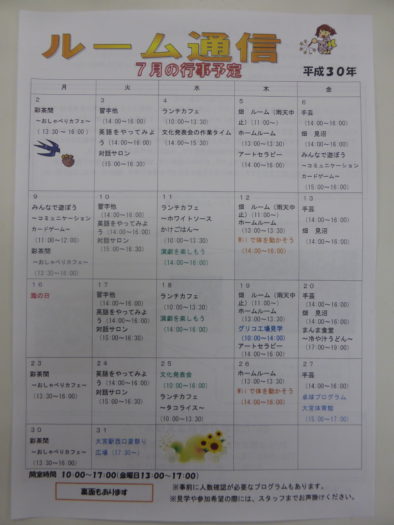 ルーム通信
7月の行事予定
平成30年
月 火 水 木 金
2
彩茶間
～おしゃべりカフェ～
(13:30～16:00)
3
習字他
(14:00～16:00)
英語をやってみよ
う(14:00～16:00)
対話サロン
(15:00～16:30)
4
ランチカフェ
(10:00～13:30)
文化発表会の作業タイム
(14:00～15:30)
5
畑 ルーム(雨天中
止)(11:00～)
ホームルーム
(13:00～13:30)
アートセラピー
(14:00～16:00)
6
手芸
(14:00～16:00)
畑 見沼
(14:00～16:00)
みんなで遊ぼう
～コミュニケーション
カードゲーム～
(15:00～16:00)
9
みんなで遊ぼう
～コミュニケーション
カードゲーム～
(11:00～12:00)
彩茶間
～おしゃべりカフェ～
(13:30～16:00)
10
習字他
(14:00～16:00)
英語をやってみよ
う(14:00～16:00)
対話サロン
(15:00～16:30)
11
ランチカフェ
～ホワイトソース
かけごはん～
(10:00～13:30)
演劇を楽しもう
(14:00～16:00)
12
畑 ルーム(雨天中
止)(11:00～)
ホームルーム
(13:00～13:30)
Wiiで体を動かそう
(14:00～16:00)
13
手芸
(14:00～16:00)
畑 見沼
(14:00～16:00)
16
海の日
17
習字他
(14:00～16:00)
英語をやってみよ
う(14:00～16:00)
対話サロン
(15:00～16:30)
18
ランチカフェ
(10:00～13:30)
演劇を楽しもう
(14:00～16:00)
19
畑 ルーム(雨天中
止)(11:00～)
ホームルーム
(13:00～13:30)
グリコ工場見学
(10:00～14:00)
アートセラピー
(14:00～16:00)
20
手芸
(14:00～16:00)
畑 見沼
(14:00～16:00)
まんま食堂
～冷や汁うどん～
(17:00～19:00)
23
彩茶間
～おしゃべりカフェ～
(13:30～16:00)
24
英語をやってみよ
う(14:00～16:00)
対話サロン
(15:00～16:30)
25
文化発表会
ランチカフェ
～タコライス～
(10:00～13:30)
26
ホームルーム
(13:00～13:30)
Wiiで体を動かそう
(14:00～16:00)
27
手芸
(14:00～16:00)
卓球プログラム
大宮体育館
(15:00～17:00)
30
彩茶間
～おしゃべりカフェ～
(13:30～16:00)
31
大宮駅西口夏祭り
広場 (17:30～)
開室時間 10:00～17:00(金曜日13:00～17:00)
裏面もあります
※事前に人数確認が必要なプログラムもあります。
※見学や参加希望の際には、スタッフまでお声掛けください。